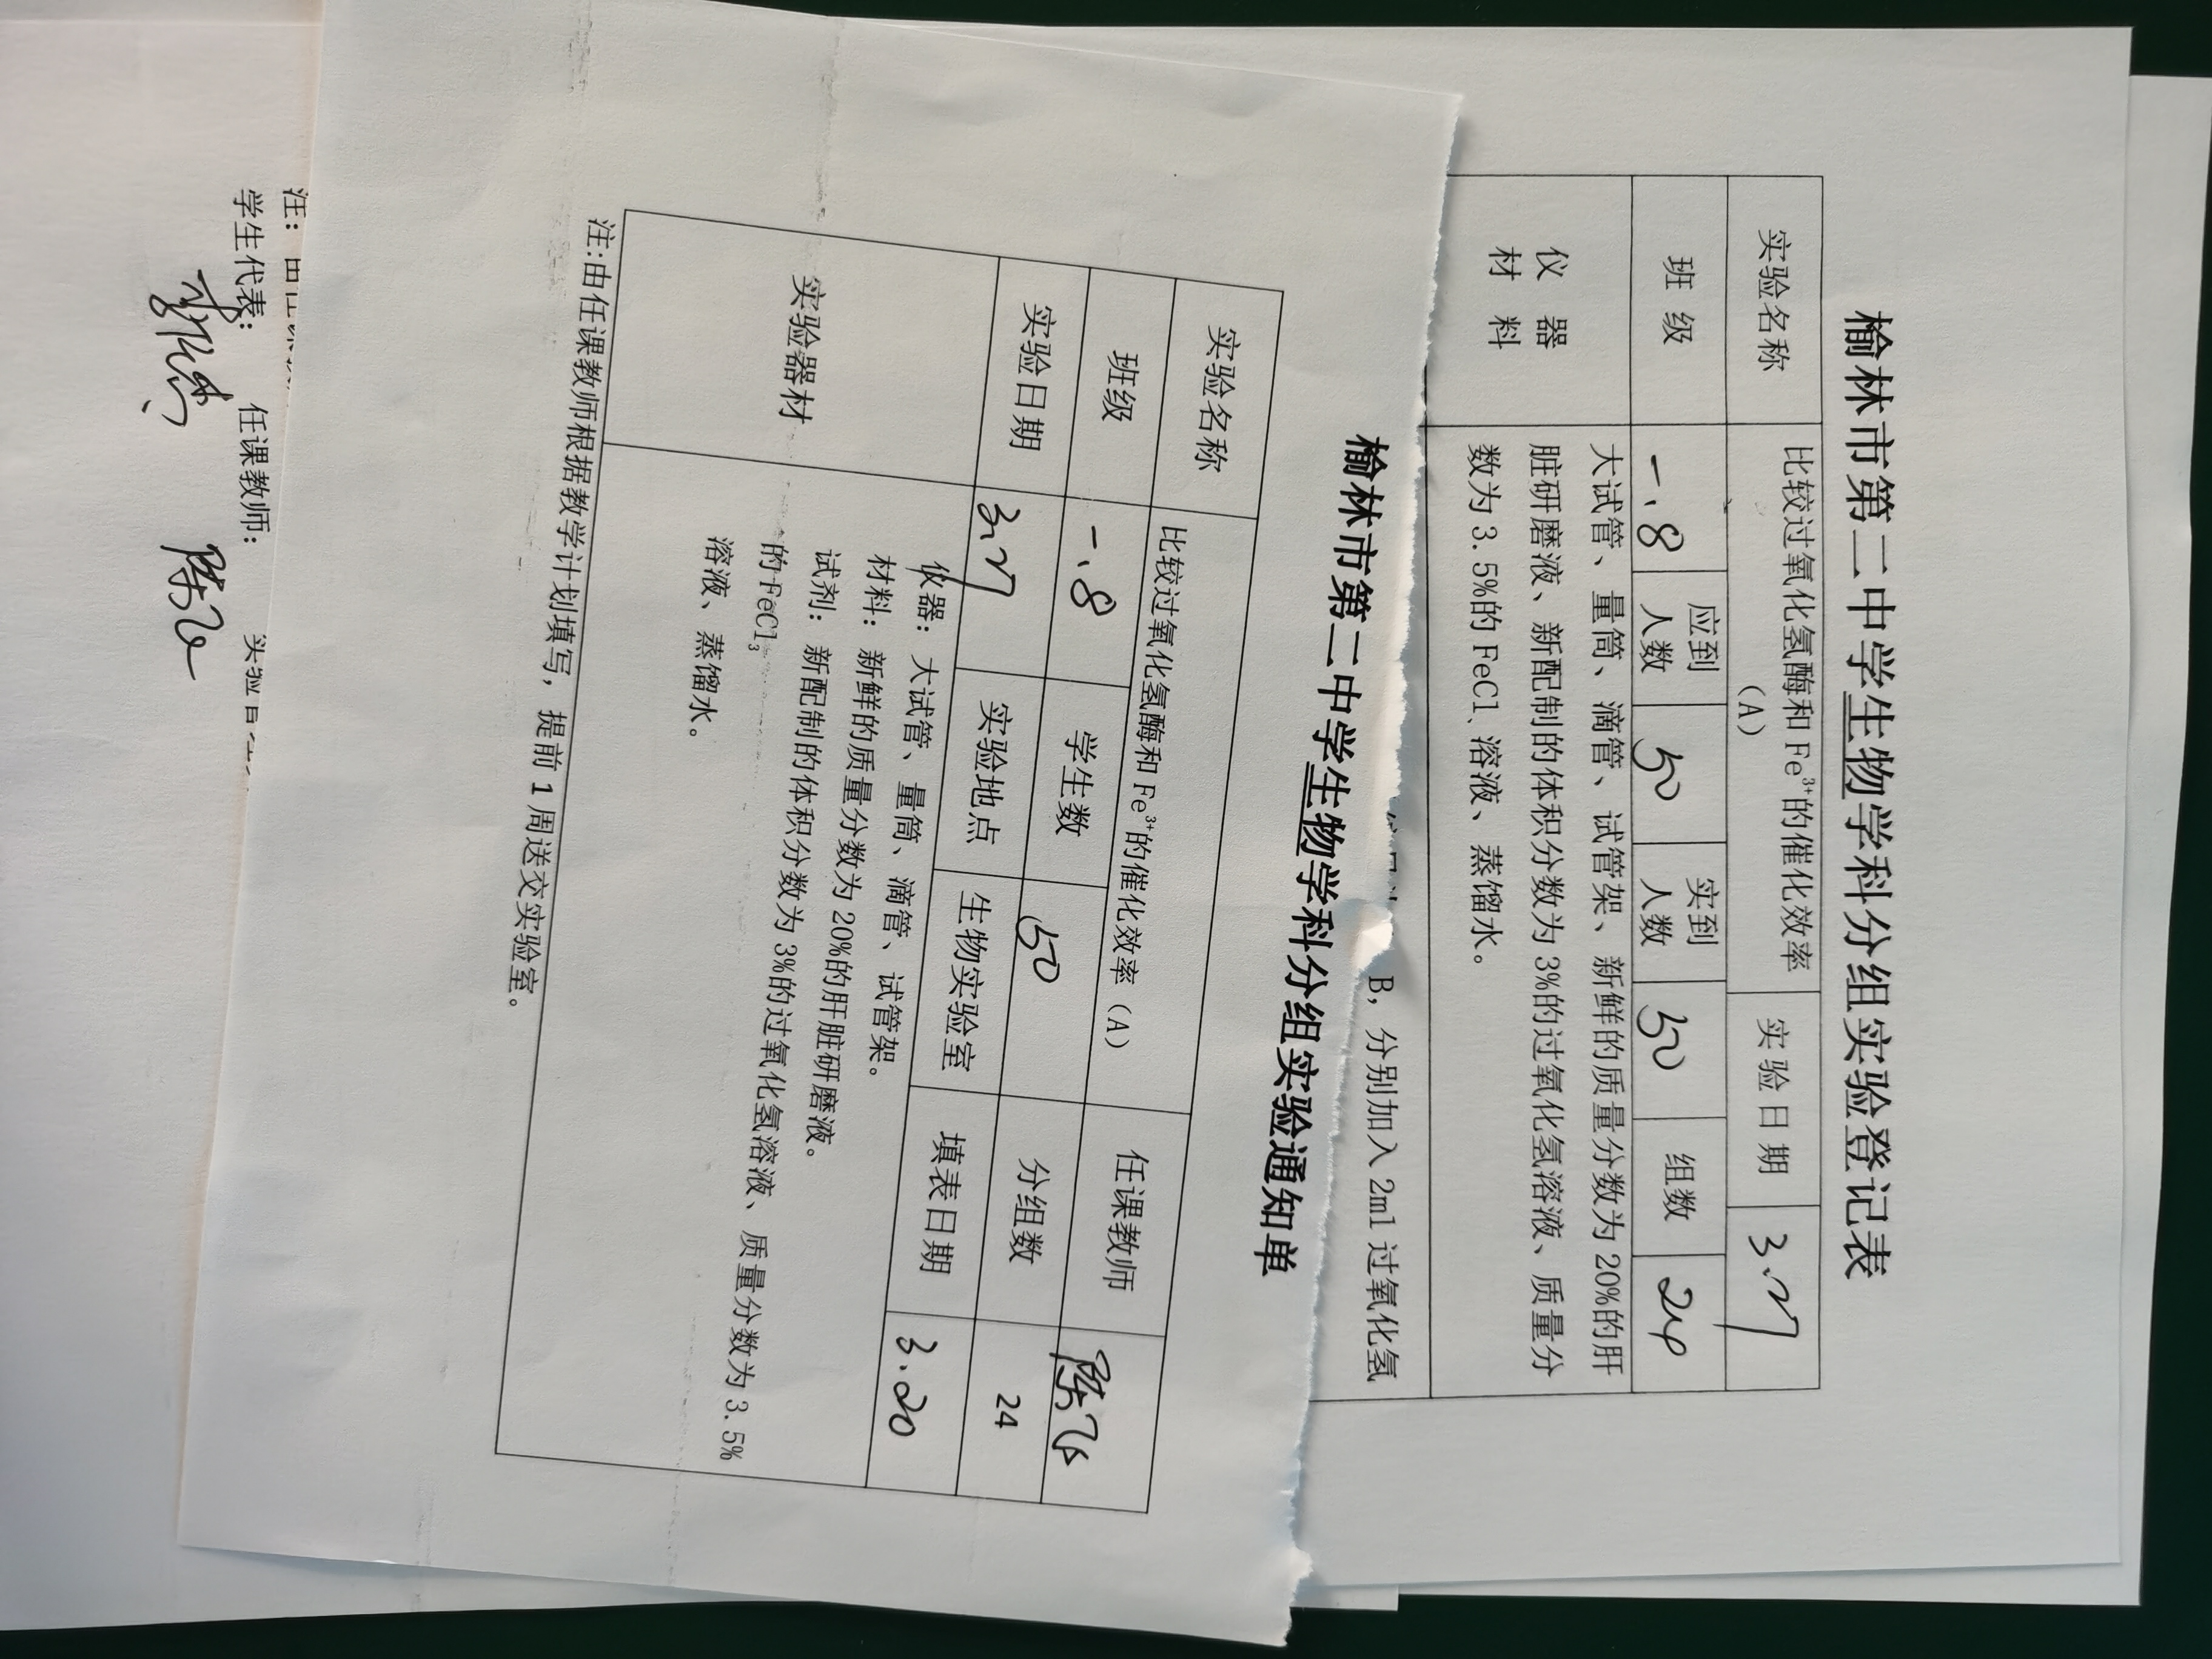 榆林市第二中学生物学科分组实验登记表
实验名称 比较过氧化氢酶和 Fe³⁺的催化效率（A） 实验日期 3.27
班级 一.8 应到人数 50 实到人数 50 组数 24
仪器材料 大试管、量筒、滴管、试管架、新鲜的质量分数为 20%的肝
脏研磨液、新配制的体积分数为 3%的过氧化氢溶液、质量分
数为 3.5%的 FeCl、溶液、蒸馏水。
B，分别加入 2ml 过氧化氢
榆林市第二中学生物学科分组实验通知单
实验名称 比较过氧化氢酶和 Fe³⁺的催化效率（A） 任课教师
班级 一.8 学生数 50 分组数 24
实验日期 3.27 实验地点 生物实验室 填表日期 3.20
实验器材 仪器：大试管、量筒、滴管、试管架。
材料：新鲜的质量分数为 20%的肝脏研磨液。
试剂：新配制的体积分数为 3%的过氧化氢溶液、质量分数为 3.5%
的 FeCl₃
溶液、蒸馏水。
注:由任课教师根据教学计划填写，提前 1 周送交实验室。
注：由任课教
学生代表： 任课教师： 实验管